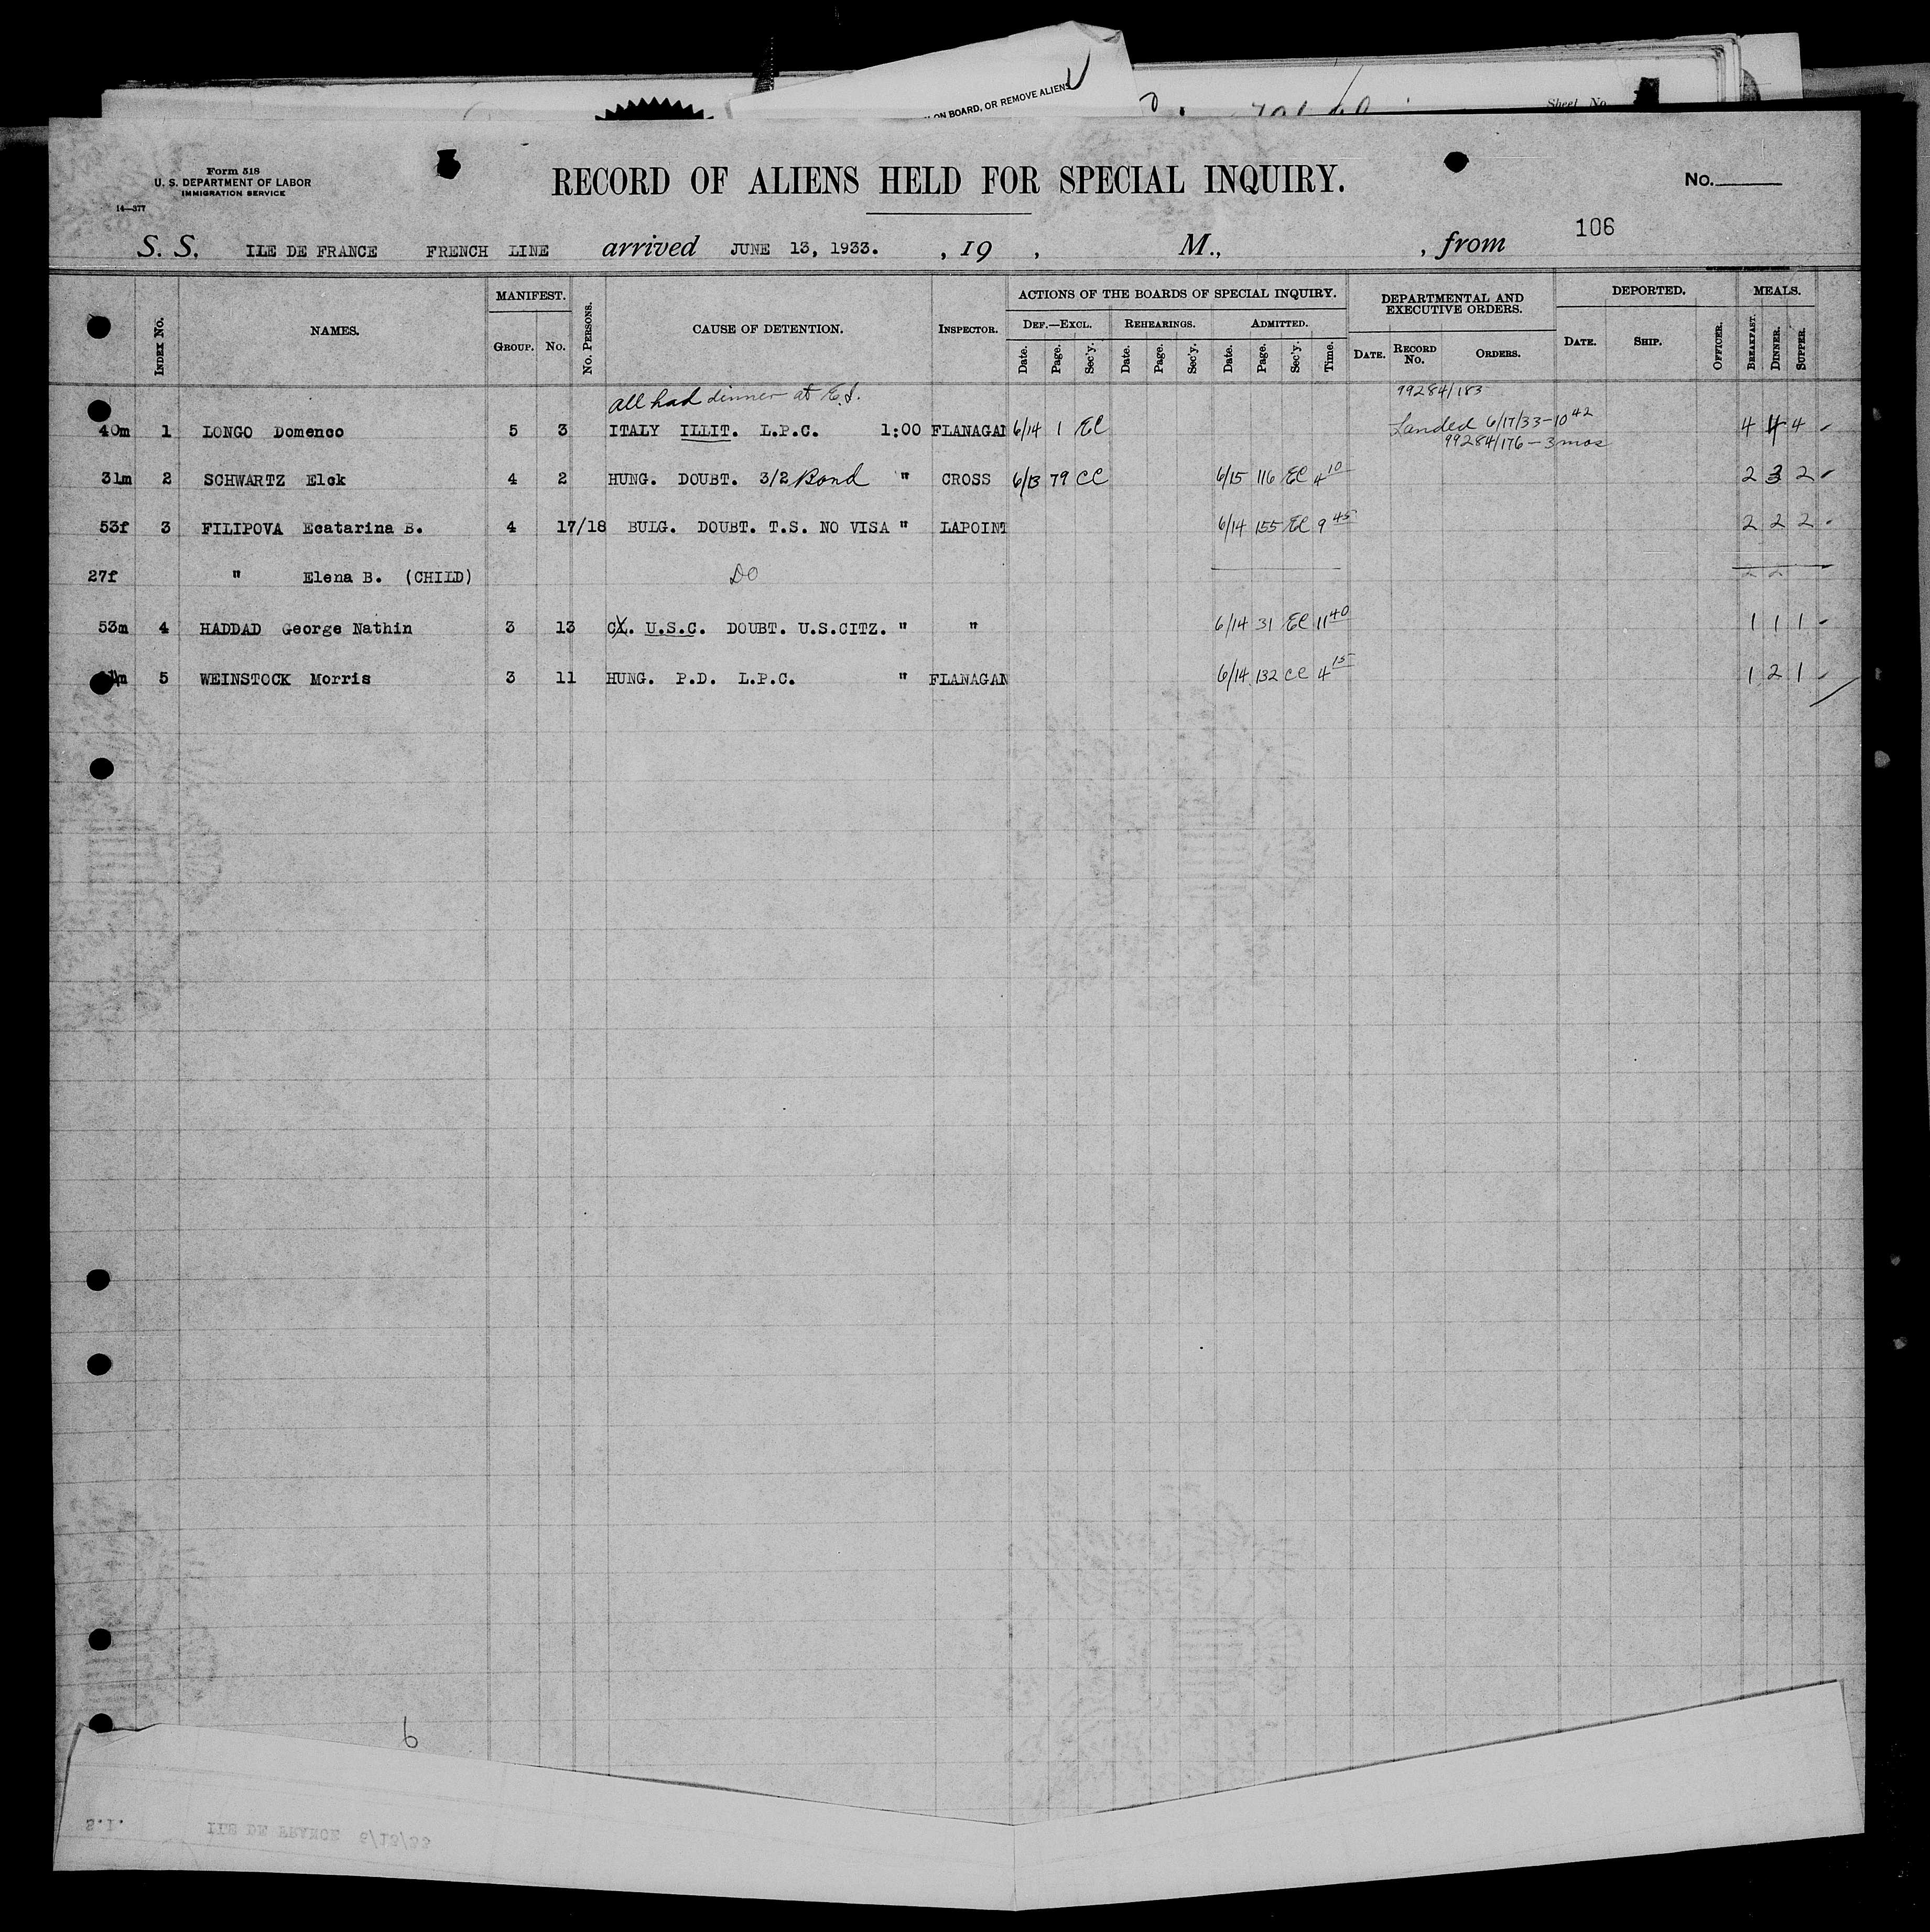 ON BOARD, OR REMOVE ALIENS
Sheet No.
Form 518
U. S. DEPARTMENT OF LABOR
IMMIGRATION SERVICE
14—377
RECORD OF ALIENS HELD FOR SPECIAL INQUIRY.
No.
106
S. S. ILE DE FRANCE FRENCH LINE arrived JUNE 13, 1933. , 19 , M., , from
INDEX No. NAMES. MANIFEST. GROUP. No. No. PERSONS. CAUSE OF DETENTION. INSPECTOR. ACTIONS OF THE BOARDS OF SPECIAL INQUIRY. DEF.—EXCL. Date. Page. Sec'y. REHEARINGS. Date. Page. Sec'y. ADMITTED. Date. Page. Sec'y. Time. DEPARTMENTAL AND EXECUTIVE ORDERS. DATE. RECORD No. ORDERS. DEPORTED. DATE. SHIP. OFFICER. MEALS. BREAKFAST. DINNER. SUPPER.
all had dinner at E.I. 99284/183
40m 1 LONGO Domenco 5 3 ITALY ILLIT. L.P.C. 1:00 FLANAGAN 6/14 1 EC Landed 6/17/33-10 42 4 4 4
99284/176 - 3 mos
31m 2 SCHWARTZ Elek 4 2 HUNG. DOUBT. 3/2 Bond " CROSS 6/13 79 CC 6/15 116 EC 4 10 2 3 2
53f 3 FILIPOVA Ecatarina B. 4 17/18 BULG. DOUBT. T.S. NO VISA " LAPOINT 6/14 155 EC 9 45 2 2 2
27f " Elena B. (CHILD) DO
53m 4 HADDAD George Nathin 3 13 CX. U.S.C. DOUBT. U.S.CITZ. " " 6/14 31 EC 11 40 1 1 1
m 5 WEINSTOCK Morris 3 11 HUNG. P.D. L.P.C. " FLANAGAN 6/14 132 CC 4 15 1 2 1
6
S.I. ILE DE FRANCE 6/13/33